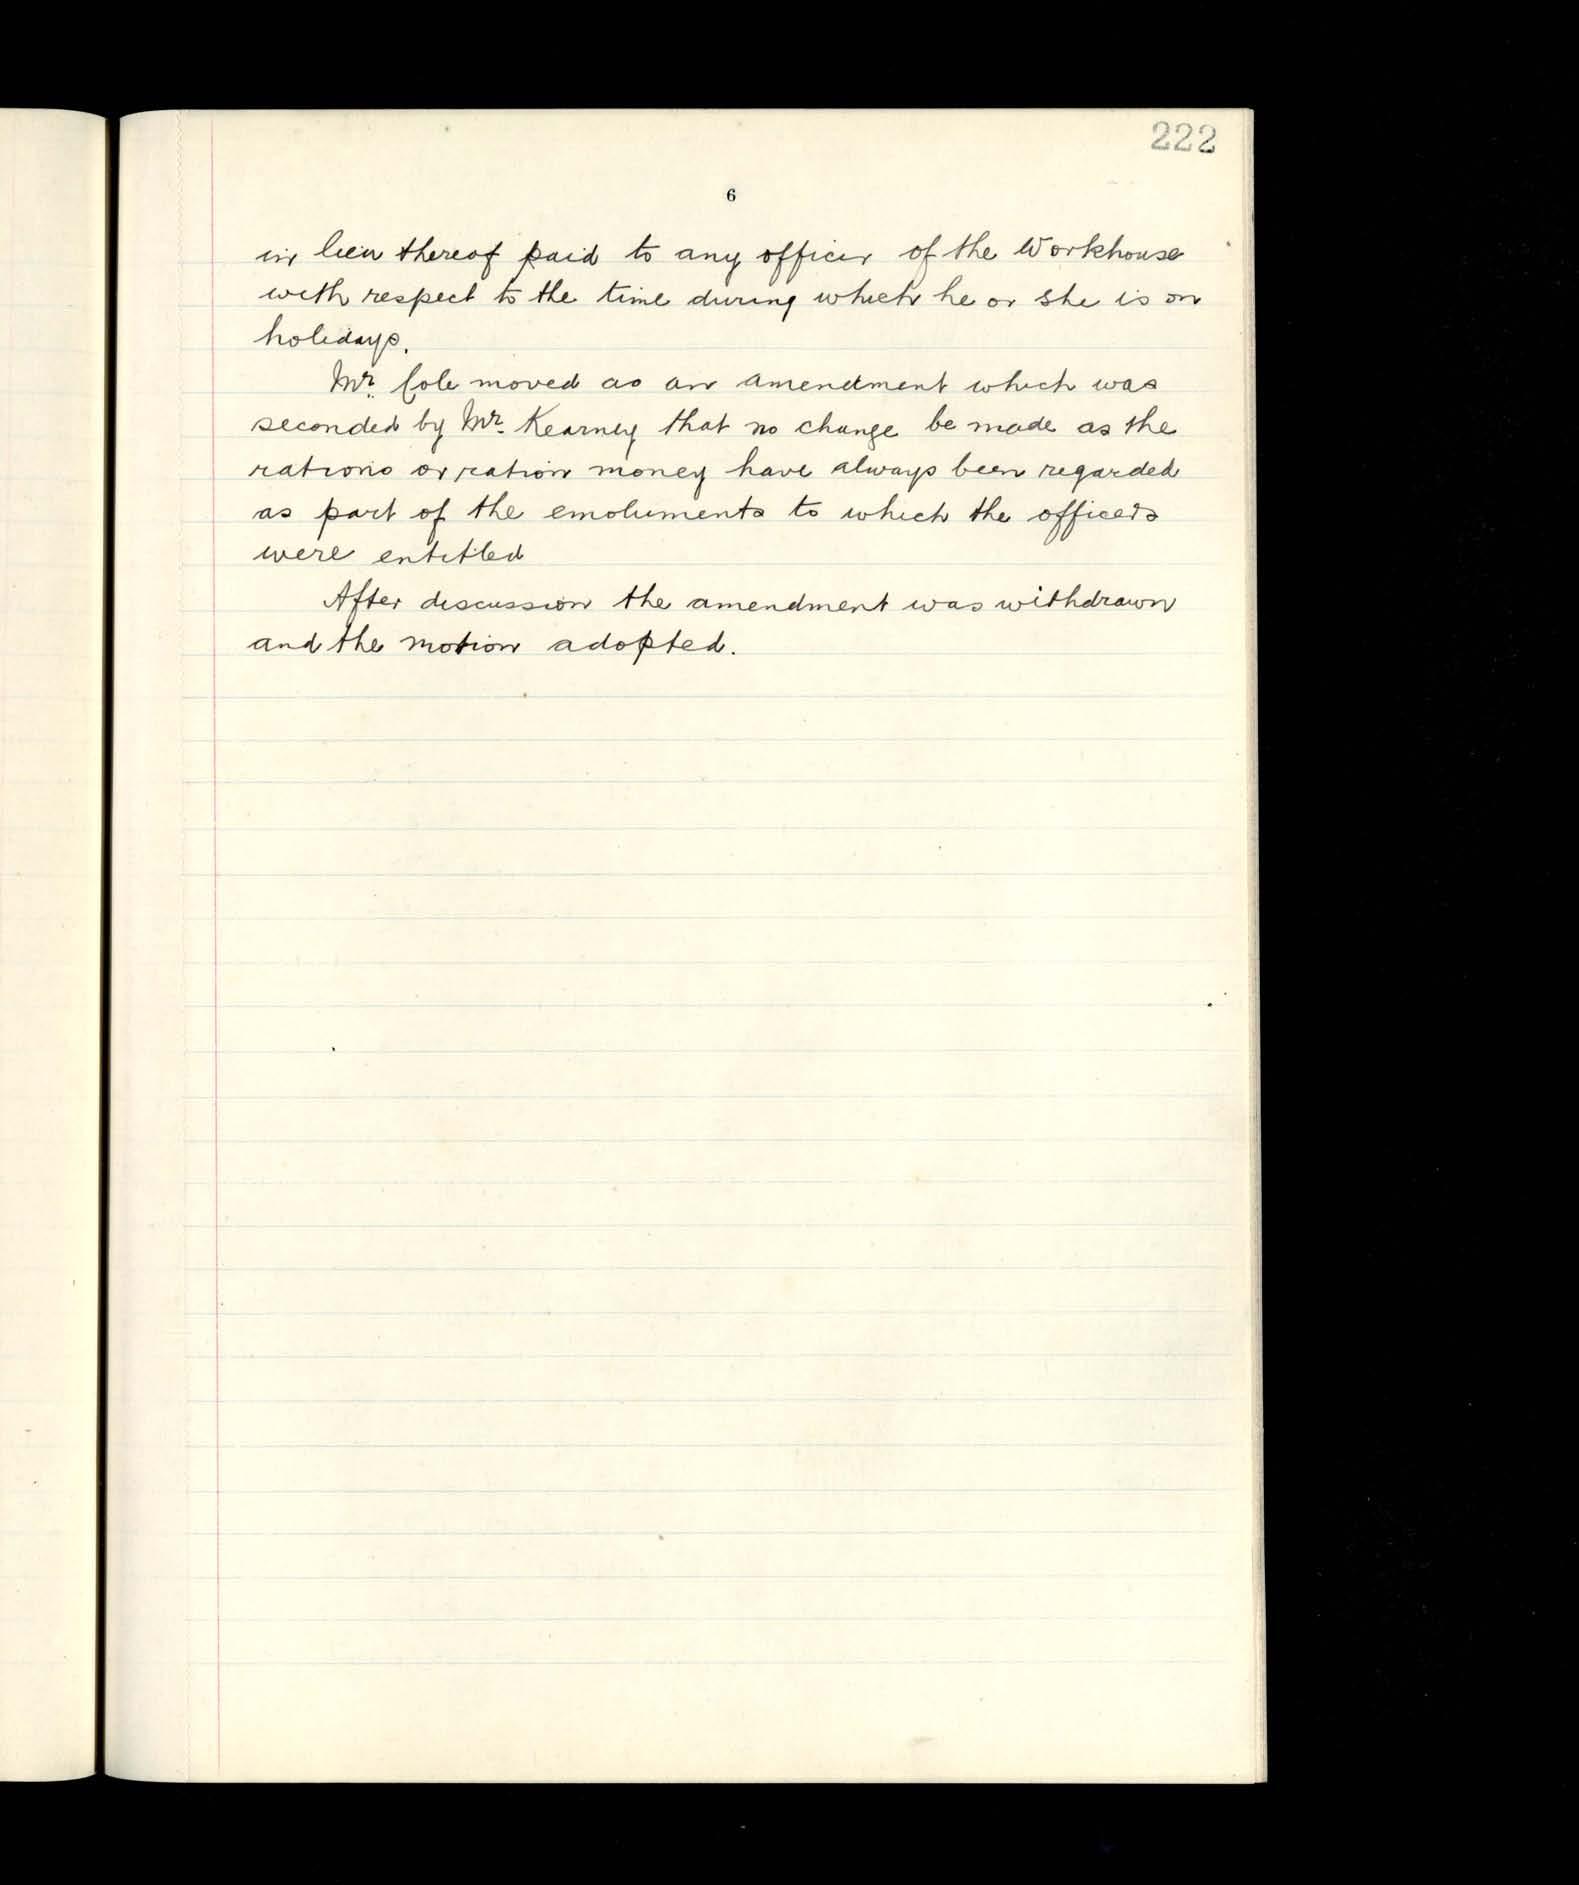 222
6
in lieu thereof paid to any officer of the Workhouse
with respect to the time during which he or she is on
holidays.
Mr. Cole moved as an amendment which was
seconded by Mr. Kearney that no change be made as the
rations or ration money have always been regarded
as part of the emoluments to which the officers
were entitled
After discussion the amendment was withdrawn
and the motion adopted.